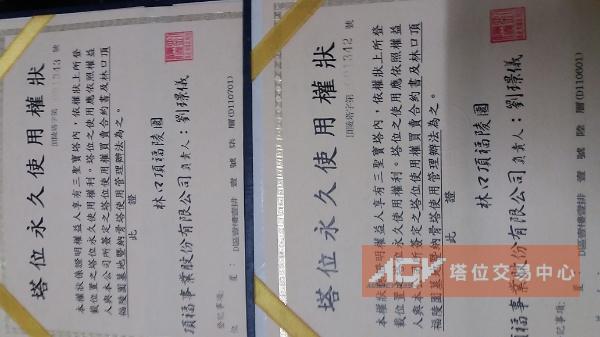 塔位永久使用權狀
頂陵塔字第 1343 號
本權狀係證明權益人享有三聖寶塔內，依權狀上所登
載位置之塔位永久使用權利。塔位之使用應依照權益
人與本公司所簽定之塔位使用權買賣合約書及林口頂
福陵園墓地暨納骨塔使用管理辦法為之。
此證
林口頂福陵園
頂福事業股份有限公司負責人：劉璟儀
登記事項：
位置：D區壹樓壹排 壹 號 柒 層(D110701)
塔位永久使用權狀
頂陵塔字第 1342 號
本權狀係證明權益人享有三聖寶塔內，依權狀上所登
載位置之塔位永久使用權利。塔位之使用應依照權益
人與本公司所簽定之塔位使用權買賣合約書及林口頂
福陵園墓地暨納骨塔使用管理辦法為之。
此證
林口頂福陵園
頂福事業股份有限公司負責人：劉璟儀
登記事項：
D區壹樓壹排 壹 號 陸 層(D110601)
塔位交易中心